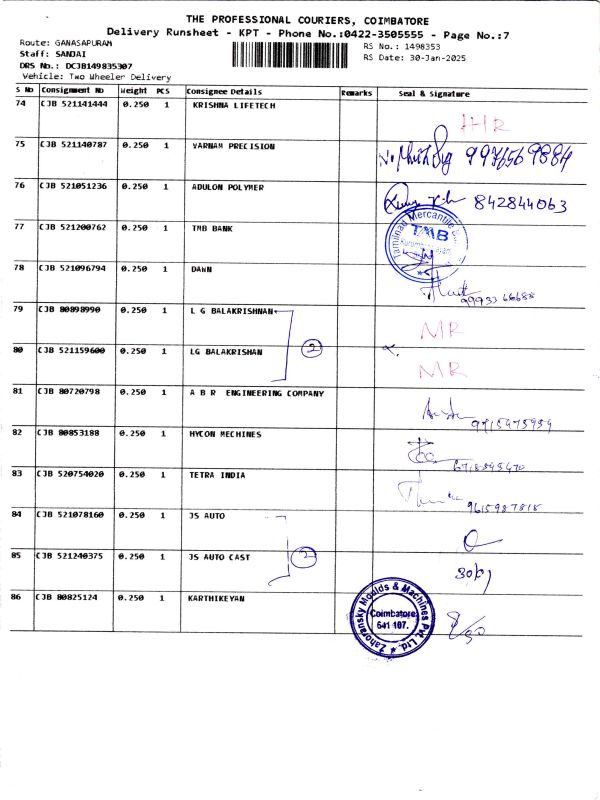 THE PROFESSIONAL COURIERS, COIMBATORE
Delivery Runsheet - KPT - Phone No.:0422-3505555 - Page No.:7
Route: GANASAPURAM
Staff: SANJAI
DRS No.: DCJB149835307
Vehicle: Two Wheeler Delivery
RS No.: 1498353
RS Date: 30-Jan-2025
S No Consignment No Weight PCS Consignee Details Remarks Seal & Signature
74 CJB 521141444 0.250 1 KRISHNA LIFETECH
75 CJB 521140787 0.250 1 VARNAM PRECISION 9976569884
76 CJB 521051236 0.250 1 ADULON POLYMER 842844063
77 CJB 521200762 0.250 1 TMB BANK
Tamilnad Mercantile
TMB
78 CJB 521096794 0.250 1 DAWN
79 CJB 80898990 0.250 1 L G BALAKRISHNAN MR
2
80 CJB 521159600 0.250 1 LG BALAKRISHAN MR
81 CJB 80720798 0.250 1 A B R ENGINEERING COMPANY
82 CJB 80853188 0.250 1 HYCON MECHINES
83 CJB 520754020 0.250 1 TETRA INDIA
84 CJB 521078160 0.250 1 JS AUTO
2
85 CJB 521240375 0.250 1 JS AUTO CAST
86 CJB 80825124 0.250 1 KARTHIKEYAN
Zahoransky Moulds & Machines Pvt. Ltd.
Coimbatore
641 107.